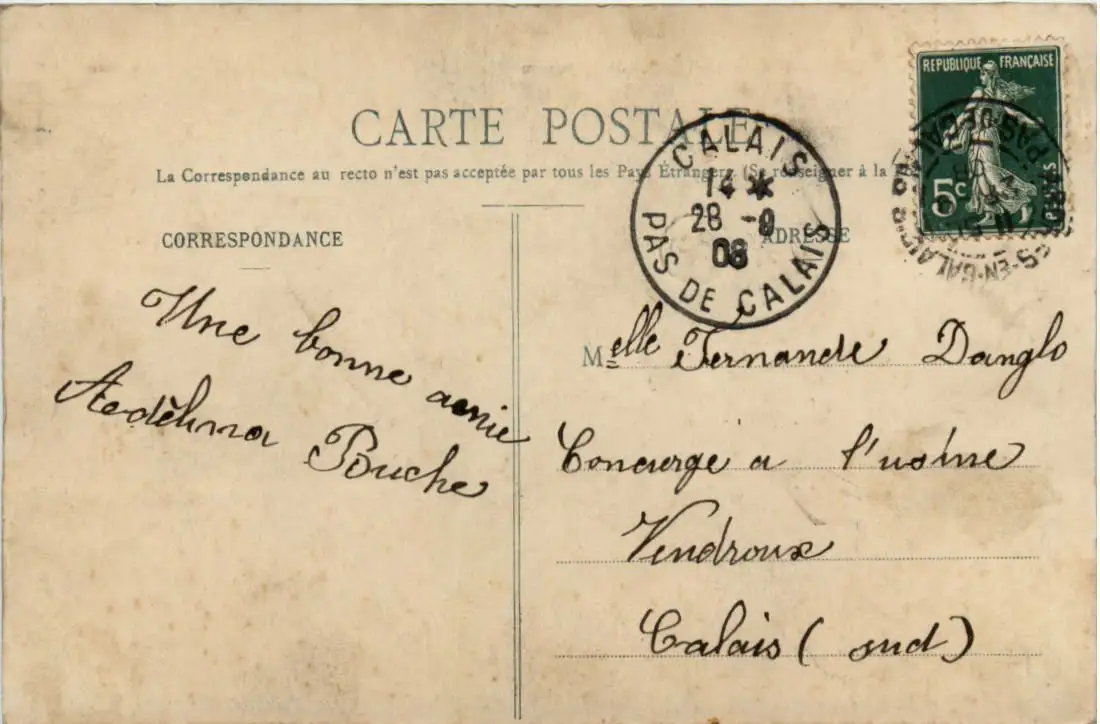 REPUBLIQUE FRANÇAISE
5c
CARTE POSTALE
La Correspondance au recto n'est pas acceptée par tous les Pays Étrangers (Se renseigner à la
CALAIS
14 *
28 -9
08
PAS DE CALAIS
CORRESPONDANCE
ADRESSE
Une bonne amie
Aedèlina Pouche
Melle Fernande Danglo
Concierge a l'usine
Vendroux
Calais (sud)